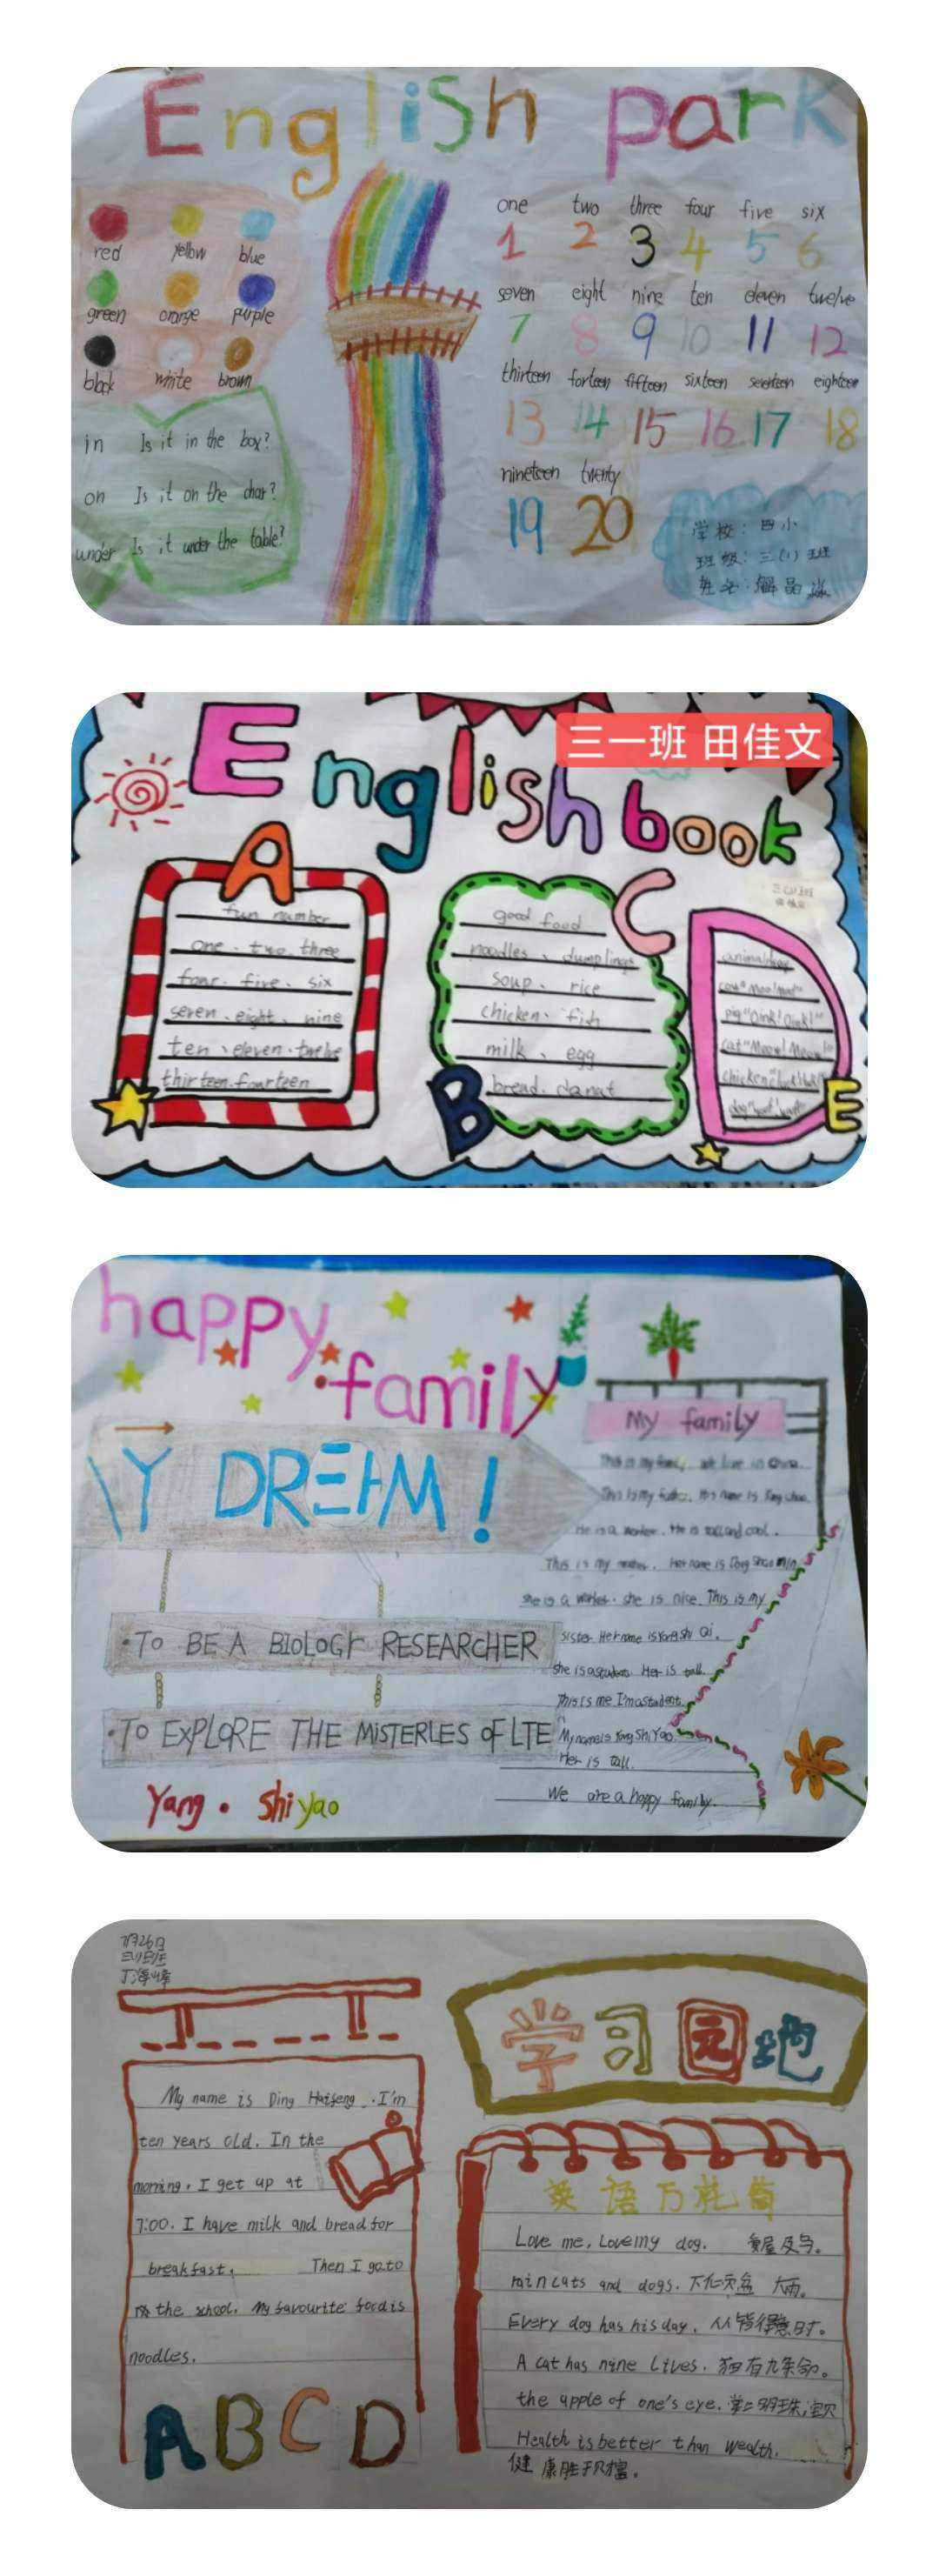 English park
red yellow blue
green orange purple
black white brown
in Is it in the box?
on Is it on the chair?
under Is it under the table?
one two three four five six
1 2 3 4 5 6
seven eight nine ten eleven twelve
7 8 9 10 11 12
thirteen forteen fifteen sixteen seventeen eighteen
13 14 15 16 17 18
nineteen twenty
19 20
学校：四小
班级：三(1)班
姓名：解晶
三一班 田佳文
English book
A
fun number
one、two、three
four、five、six
seven、eight、nine
ten、eleven、twelve
thirteen、fourteen
B
C
good food
noodles、dumplings
soup、rice
chicken、fish
milk、egg
bread、donat
D
cow
pig "Oink! Oink!"
cat "Meow! Meow!"
chicken
dog
E
happy
family
Y DREAM!
·TO BE A BIOLOGY RESEARCHER
·TO EXPLORE THE MISTERLES OF LTE
Yang · Shi yao
My family
This is my family. We live in
This is my father. His name is Yang
He is a worker. He is tall and cool.
This is my mother. Her name is
she is a worker. she is nice. This is my
sister. Her name is Yang Shi Qi.
she is a student. Her is tall
This is me I'm a student
My name is Yang Shi Yao
Her is tall.
We are a happy family.
三(1)班
丁海峰
My name is Ding Haifeng. I'm
ten years old. In the
morning. I get up at
7:00. I have milk and bread for
breakfast. Then I go to
the school. My favourite food is
noodles.
ABCD
学习园地
英语万花筒
Love me, Love my dog. 爱屋及乌。
rain cats and dogs. 下倾盆大雨。
Every dog has his day. 人人皆得意时。
A cat has nine lives. 猫有九条命。
the apple of one's eye. 掌上明珠；宝贝
Health is better than wealth.
健康胜于财富。